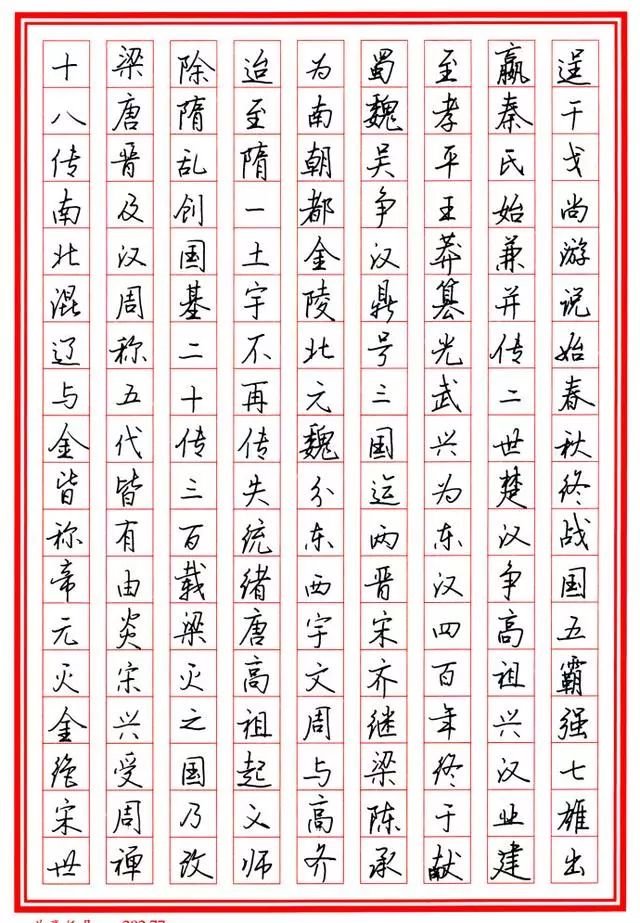 逞干戈尚游说始春秋终战国五霸强七雄出
嬴秦氏始兼并传二世楚汉争高祖兴汉业建
至孝平王莽篡光武兴为东汉四百年终于献
蜀魏吴争汉鼎号三国运两晋宋齐继梁陈承
为南朝都金陵北元魏分东西宇文周与高齐
迨至隋一土宇不再传失统绪唐高祖起义师
除隋乱创国基二十传三百载梁灭之国乃改
梁唐晋及汉周称五代皆有由炎宋兴受周禅
十八传南北混辽与金皆称帝元灭金绝宋世